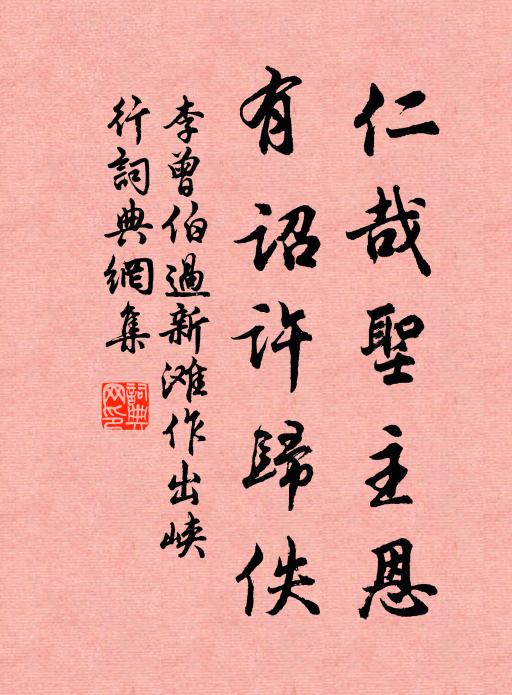 仁哉聖主恩
有詔許歸佚
李曾伯過新滩作出峡
行詞典網集
詞典網印